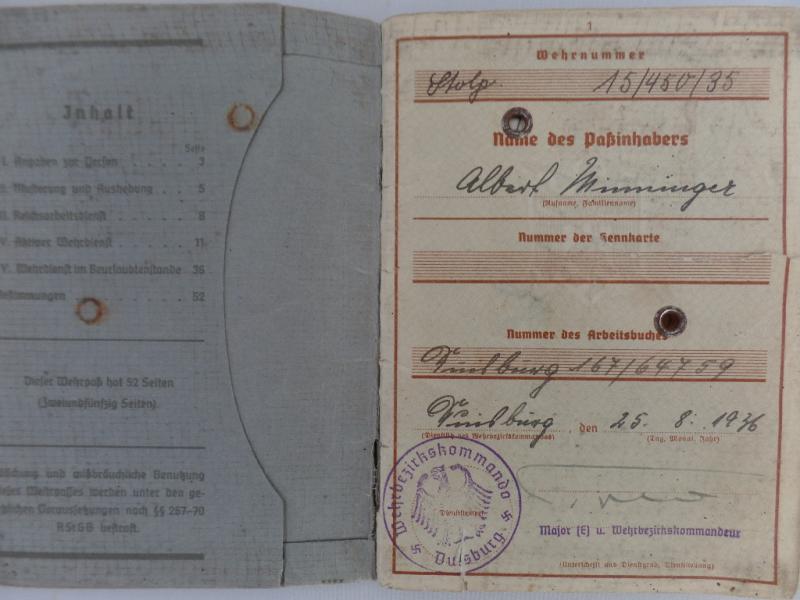 Inhalt
Seite
I. Angaben zur Person . . . . 3
II. Musterung und Aushebung . . . 5
III. Reichsarbeitsdienst . . . . 8
IV. Aktiver Wehrdienst . . . . 11
V. Wehrdienst im Beurlaubtenstande 36
Bestimmungen . . . . 52
Dieser Wehrpaß hat 52 Seiten
(Zweiundfünfzig Seiten).
und mißbräuchliche Benutzung
dieses Wehrpasses werden unter den ge-
setzlichen Voraussetzungen nach §§ 267–70
RStGB bestraft.
1
Wehrnummer
Stolp 15/450/35
Name des Paßinhabers
Albert Minninger
(Rufname, Familienname)
Nummer der Kennkarte
Nummer des Arbeitsbuches
Duisburg 167/64759
Duisburg, den 25. 8. 1936
(Dienstsitz des Wehrbezirkskommandos) (Tag, Monat, Jahr)
Wehrbezirkskommando
Duisburg
(Dienststempel)
Major (E) u. Wehrbezirkskommandeur
(Unterschrift und Dienstgrad, Dienststellung)